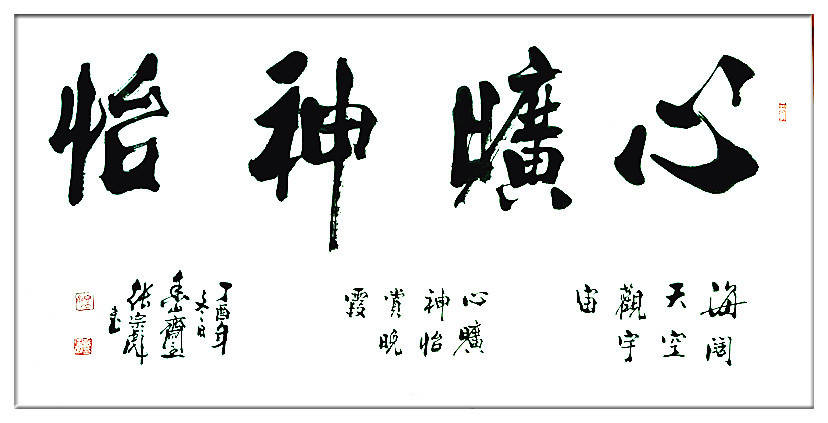 心曠神怡
海阔
天空
觀宇
宙
心曠
神怡
賞晚
霞
丁酉年
冬日
山齋主
张宗彪
書